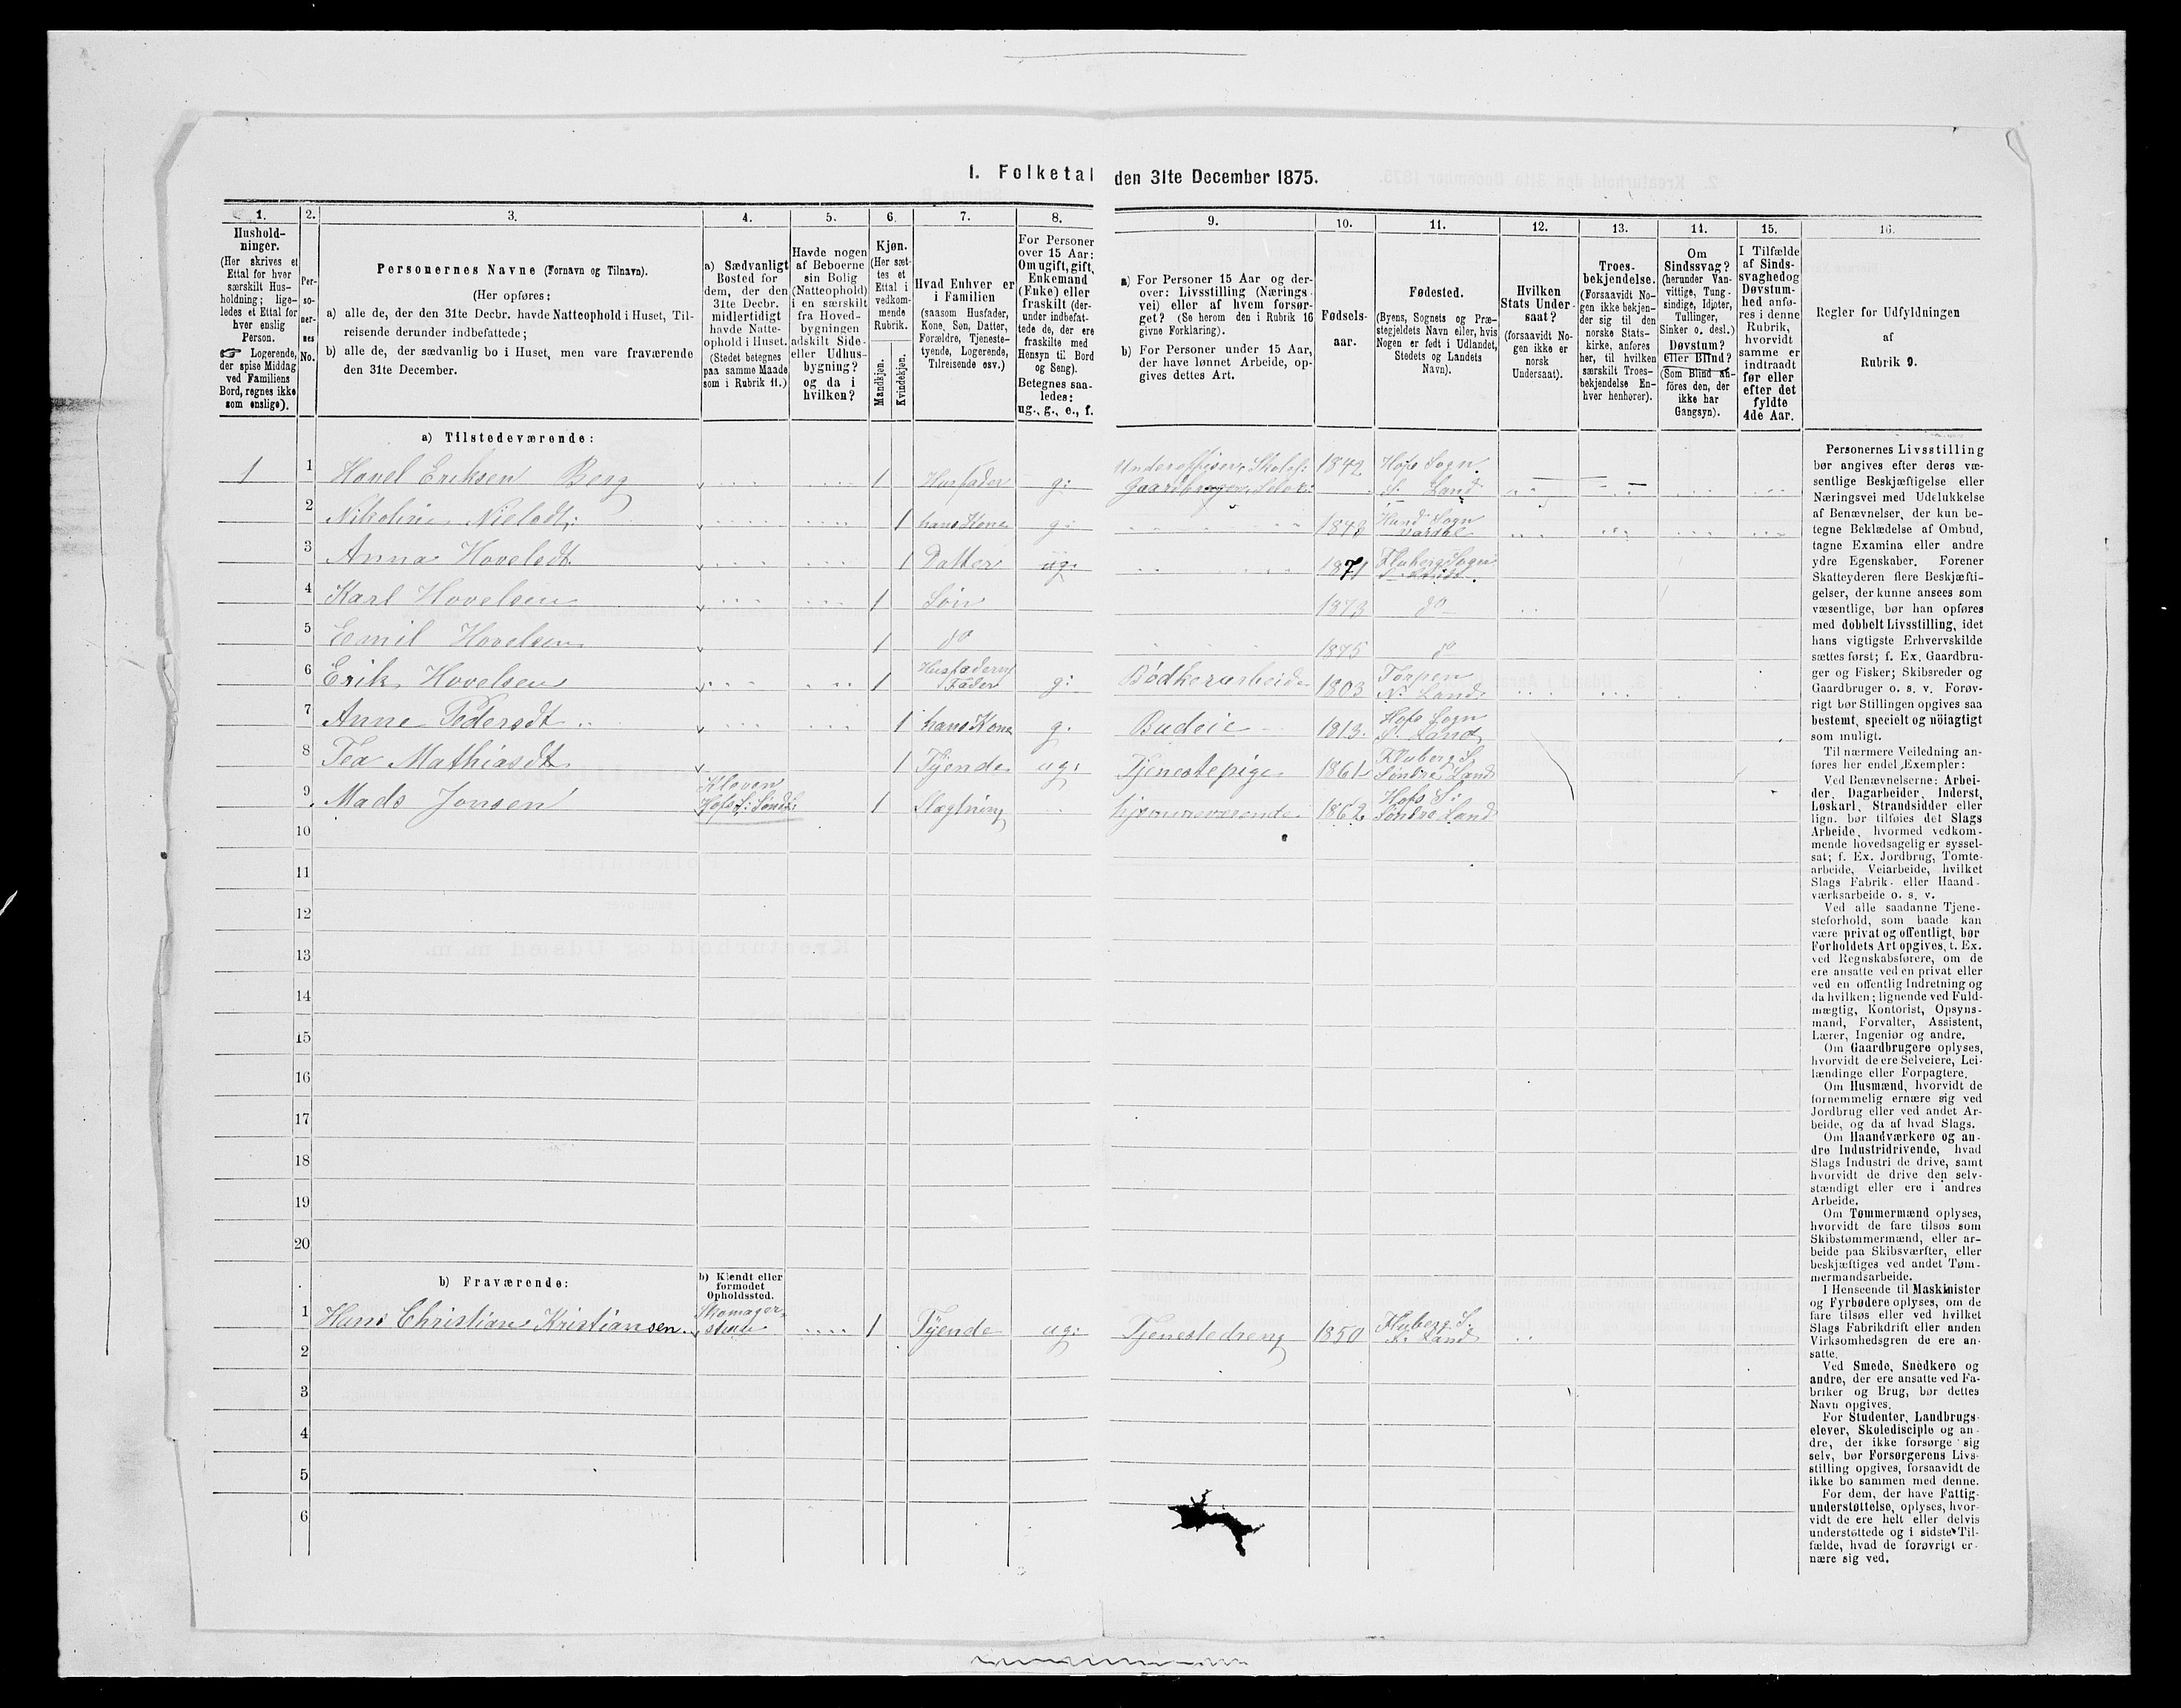 1. Folketal den 31te December 1875.
1.
Hushold-
ninger.
(Her skrives et
Ettal for hver
særskilt Hus-
holdning; lige-
ledes et Ettal for
hver enslig
Person.
☞ Logerende,
der spise Middag
ved Familiens
Bord, regnes ikke
som enslige).
2.
Per-
so-
ner-
nes
No.
3.
Personernes Navne (Fornavn og Tilnavn).
(Her opføres:
a) alle de, der den 31te Decbr. havde Natteophold i Huset, Til-
reisende derunder indbefattede;
b) alle de, der sædvanlig bo i Huset, men vare fraværende
den 31te December.
4.
a) Sædvanligt
Bosted for
dem, der den
31te Decbr.
midlertidigt
havde Natte-
ophold i Huset.
(Stedet betegnes
paa samme Maade
som i Rubrik 11.)
5.
Havde nogen
af Beboerne
sin Bolig
(Natteophold)
i en særskilt
fra Hoved-
bygningen
adskilt Side-
eller Udhus-
bygning?
og da i
hvilken?
6.
Kjøn.
(Her sæt-
tes et
Ettal i
vedkom-
mende
Rubrik.
Mandkjøn.
Kvindekjøn.
7.
Hvad Enhver er
i Familien
(saasom Husfader,
Kone, Søn, Datter,
Forældre, Tjeneste-
tyende, Logerende,
Tilreisende osv.)
8.
For Personer
over 15 Aar:
Om ugift, gift,
Enkemand
(Enke) eller
fraskilt (der-
under indbefat-
tede de, der ere
fraskilte med
Hensyn til Bord
og Seng).
Betegnes saa-
ledes:
ug., g., e., f.
9.
a) For Personer 15 Aar og der-
over: Livsstilling (Nærings-
vei) eller af hvem forsør-
get? (Se herom den i Rubrik 16
givne Forklaring).
b) For Personer under 15 Aar,
der have lønnet Arbeide, op-
gives dettes Art.
10.
Fødsels-
aar.
11.
Fødested.
(Byens, Sognets og Præ-
stegjeldets Navn eller, hvis
Nogen er født i Udlandet,
Stedets og Landets
Navn).
12.
Hvilken
Stats Under-
saat?
(forsaavidt No-
gen ikke er
norsk
Undersaat).
13.
Troes-
bekjendelse.
(Forsaavidt No-
gen ikke bekjen-
der sig til den
norske Stats-
kirke, anføres
her, til hvilken
særskilt Troes-
bekjendelse En-
hver henhører).
14.
Om
Sindssvag?
(herunder Van-
vittige, Tung-
sindige, Idioter,
Tullinger,
Sinker o. desl.)
Døvstum?
eller Blind?
(Som Blind an-
føres den, der
ikke har
Gangsyn).
15.
I Tilfælde
af Sinds-
svaghed og
Døvstum-
hed anfø-
res i denne
Rubrik,
hvorvidt
samme er
indtraadt
før eller
efter det
fyldte
4de Aar.
16.
Regler for Udfyldningen
af
Rubrik 9.
a) Tilstedeværende:
1 1 Hovel Eriksen Berg 1 Husfader g: Underofficer, 1842 Hofs Sogn
Gaardbruger, Selvei: S. Land
2 Nikoline Nielsdt: 1 hans Kone g: Hund Sogn
Vardal
3 Anna Hovelsdt. 1 Datter ug. 1871 Fluberg Sogn
S. Land
4 Karl Hovelsen 1 Søn 1873 do
5 Emil Hovelsen 1 do 1875 do
6 Erik Hovelsen 1 Husfaderns Fader g: Bødkerarbeide 1803 Torpen
N. Land
7 Anne Pedersdt 1 hans Kone g. Budeie 1813. Hofs Sogn
S. Land
8 Tea Mathiasdt 1 Tyende ug: Tjenestepige 1861 Fluberg S.
Søndre Land
9 Mads Jonsen Kloven
Hofs S: Sønd: L 1 Slægtning hjemmeværende 1862 Hofs S:
Søndre Land
10
11
12
13
14
15
16
17
18
19
20
b) Fraværende:
b) Kjendt eller
formodet
Opholdssted.
1 Hans Christian Kristiansen. Skomager-
stuen 1 Tyende ug: Tjenestedreng 1850 Fluberg S.
S. Land
2
3
4
5
6
Personernes Livsstilling
bør angives efter deres væ-
sentlige Beskjæftigelse eller
Næringsvei med Udelukkelse
af Benævnelser, der kun be-
tegne Beklædelse af Ombud,
tagne Examina eller andre
ydre Egenskaber. Forener
Skatteyderen flere Beskjæfti-
gelser, der kunne ansees som
væsentlige, bør han opføres
med dobbelt Livsstilling, idet
hans vigtigste Erhvervskilde
sættes først; f. Ex. Gaardbru-
ger og Fisker; Skibsreder og
Gaardbruger o. s. v. Forøv-
rigt bør Stillingen opgives saa
bestemt, specielt og nöiagtigt
som muligt.
Til nærmere Veiledning an-
føres her endel Exempler:
Ved Benævnelserne: Arbei-
der, Dagarbeider, Inderst,
Løskarl, Strandsidder eller
lign. bør tilføies det Slags
Arbeide, hvormed vedkom-
mende hovedsagelig er syssel-
sat; f. Ex. Jordbrug, Tomte-
arbeide, Veiarbeide, hvilket
Slags Fabrik- eller Haand-
værksarbeide o. s. v.
Ved alle saadanne Tjene-
steforhold, som baade kan
være privat og offentligt, bør
Forholdets Art opgives, t. Ex.
ved Regnskabsførere, om de
ere ansatte ved en privat eller
ved en offentlig Indretning og
da hvilken; lignende ved Fuld-
mægtig, Kontorist, Opsyns-
mand, Forvalter, Assistent,
Lærer, Ingeniør og andre.
Om Gaardbrugere oplyses,
hvorvidt de ere Selveiere, Lei-
lændinge eller Forpagtere.
Om Husmænd, hvorvidt de
fornemmelig ernære sig ved
Jordbrug eller ved andet Ar-
beide, og da af hvad Slags.
Om Haandværkere og an-
dre Industridrivende, hvad
Slags Industri de drive, samt
hvorvidt de drive den selv-
stændigt eller ere i andres
Arbeide.
Om Tømmermænd oplyses,
hvorvidt de fare tilsøs som
Skibstømmermænd, eller ar-
beide paa Skibsværfter, eller
beskjæftiges ved andet Tøm-
mermandsarbeide.
I Henseende til Maskinister
og Fyrbødere oplyses, om de
fare tilsøs eller ved hvilket
Slags Fabrikdrift eller anden
Virksomhedsgren de ere an-
satte.
Ved Smede, Snedkere og
andre, der ere ansatte ved Fa-
briker og Brug, bør dettes
Navn opgives.
For Studenter, Landbrugs-
elever, Skoledisciple og an-
dre, der ikke forsørge sig
selv, bør Forsørgerens Livs-
stilling opgives, forsaavidt de
ikke bo sammen med denne.
For dem, der have Fattig-
understøttelse, oplyses, hvor-
vidt de ere helt eller delvis
understøttede og i sidste Til-
fælde, hvad de forøvrigt er-
nære sig ved.